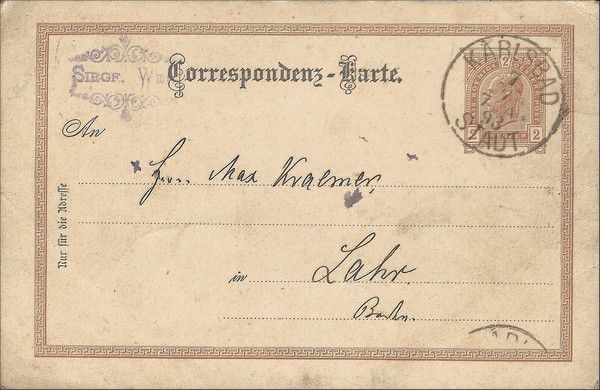 SIEGF.
Correspondenz-Karte.
2
KARLSBAD
93
STADT
2 2
An
Herrn Max Kraemer,
Nur für die Adresse
in Lahr.
Baden.